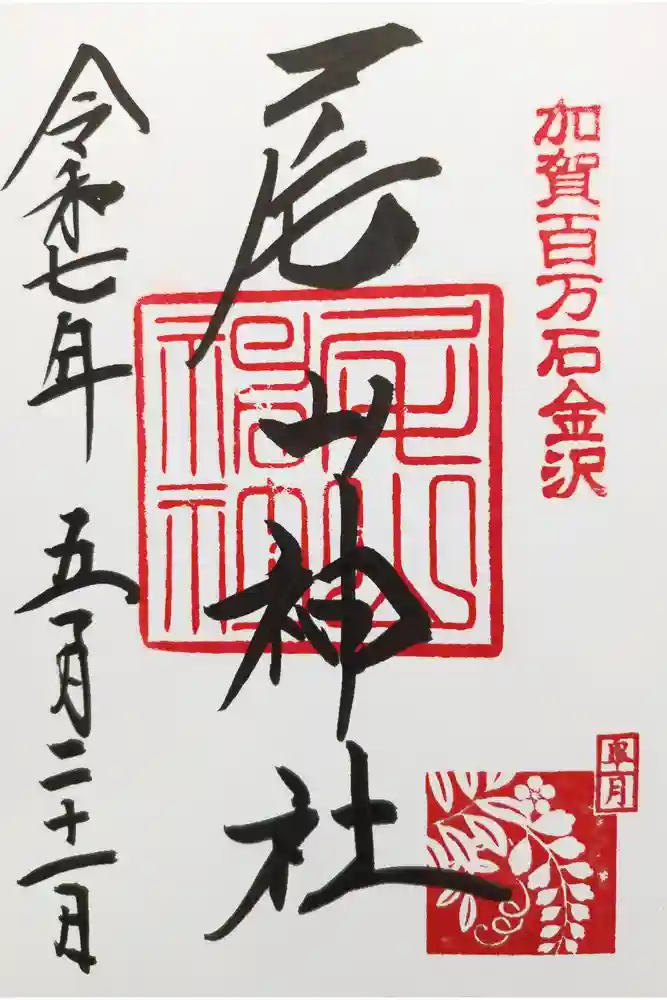 加賀百万石金沢
尾山神社
令和七年 五月二十一日
皐月